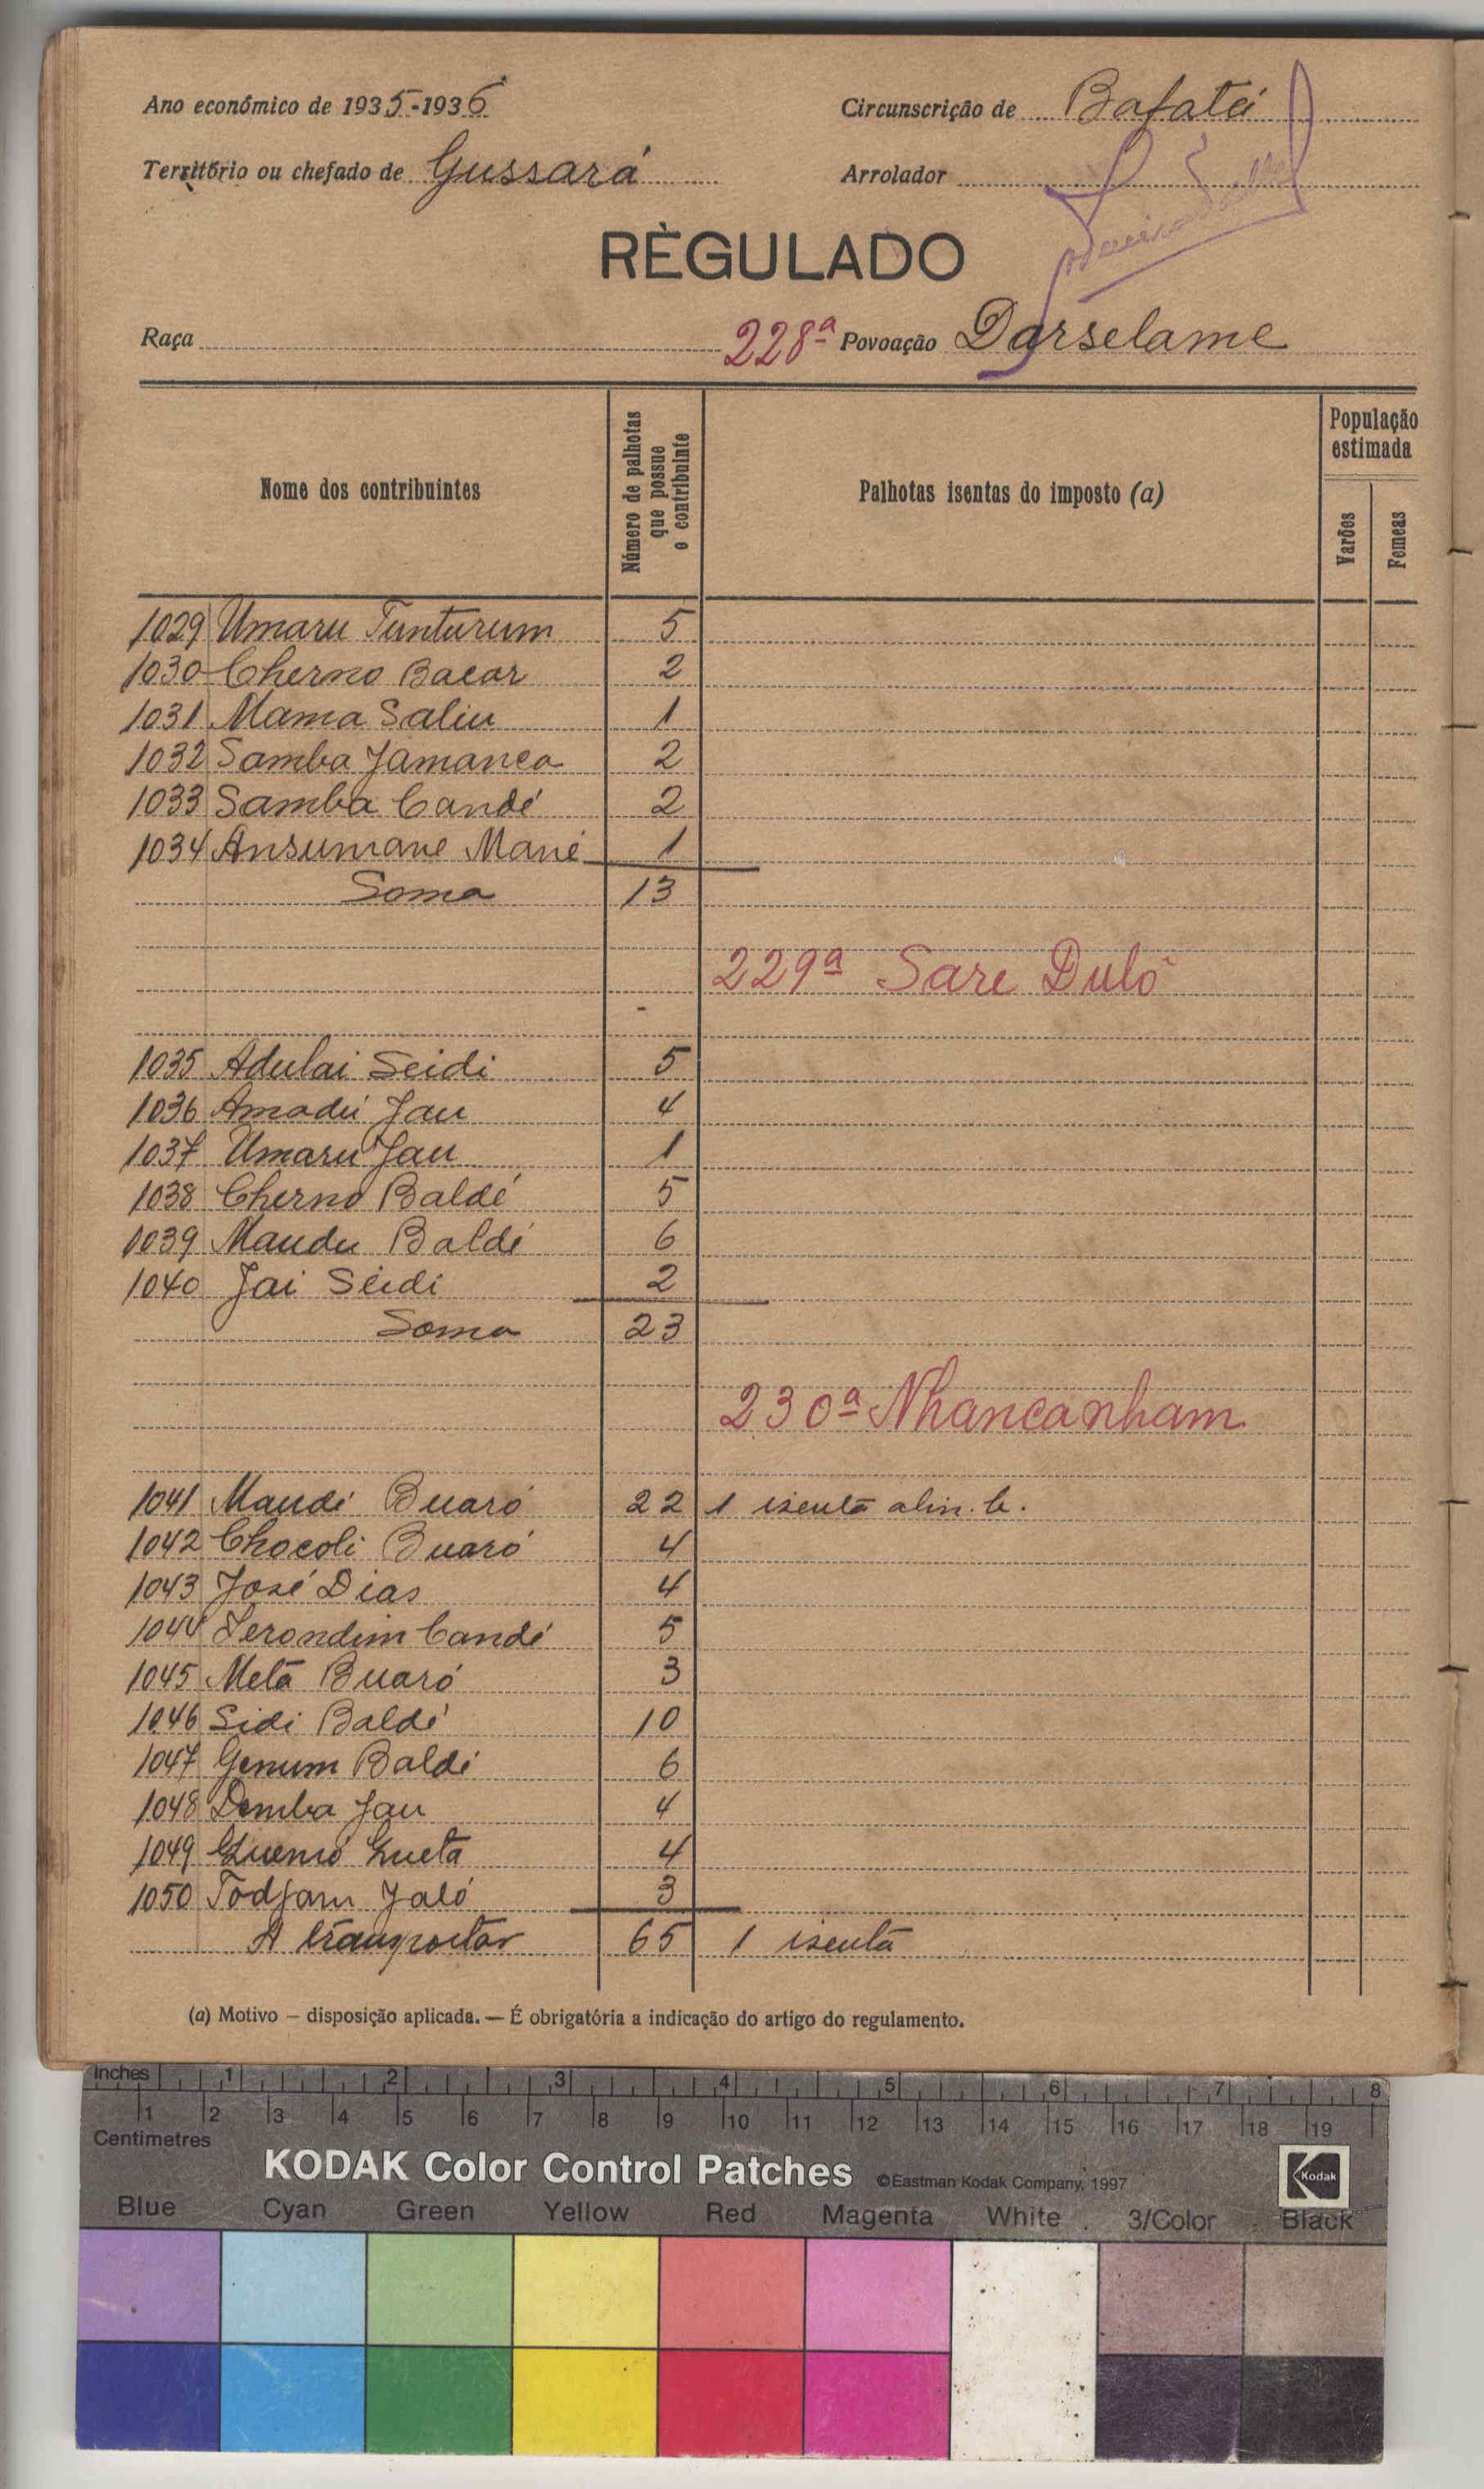 Ano económico de 1935-1936
Circunscrição de Bafatá
Território ou chefado de Gussará
Arrolador
RÈGULADO
Raça
228ª Povoação Darselame
Nome dos contribuintes
Número de palhotas que possue o contribuinte
Palhotas isentas do imposto (a)
População estimada
Varões
Femeas
1029 Umaru Tunturum 5
1030 Cherno Bacar 2
1031 Mama Saliu 1
1032 Samba Jamanca 2
1033 Samba Candé 2
1034 Ansumane Mané 1
Soma 13
229ª Sare Duló
1035 Adulai Seidi 5
1036 Amadú Jau 4
1037 Umaru Jau 1
1038 Cherno Baldé 5
1039 Maudu Baldé 6
1040 Jai Seidi 2
Soma 23
230ª Nhancanham
1041 Maudé Buaró 22 1 isenta alin. b.
1042 Chocoli Buaró 4
1043 José Dias 4
1044 Serondim Candé 5
1045 Metá Buaró 3
1046 Sidi Baldé 10
1047 Genum Baldé 6
1048 Demba Jau 4
1049 4
1050 Todjam Jaló 3
A transportar 65 1 isenta
(a) Motivo — disposição aplicada. — É obrigatória a indicação do artigo do regulamento.
Inches 1 2 3 4 5 6 7 8
1 2 3 4 5 6 7 8 9 10 11 12 13 14 15 16 17 18 19
Centimetres
KODAK Color Control Patches ©Eastman Kodak Company, 1997 Kodak
Blue Cyan Green Yellow Red Magenta White 3/Color Black